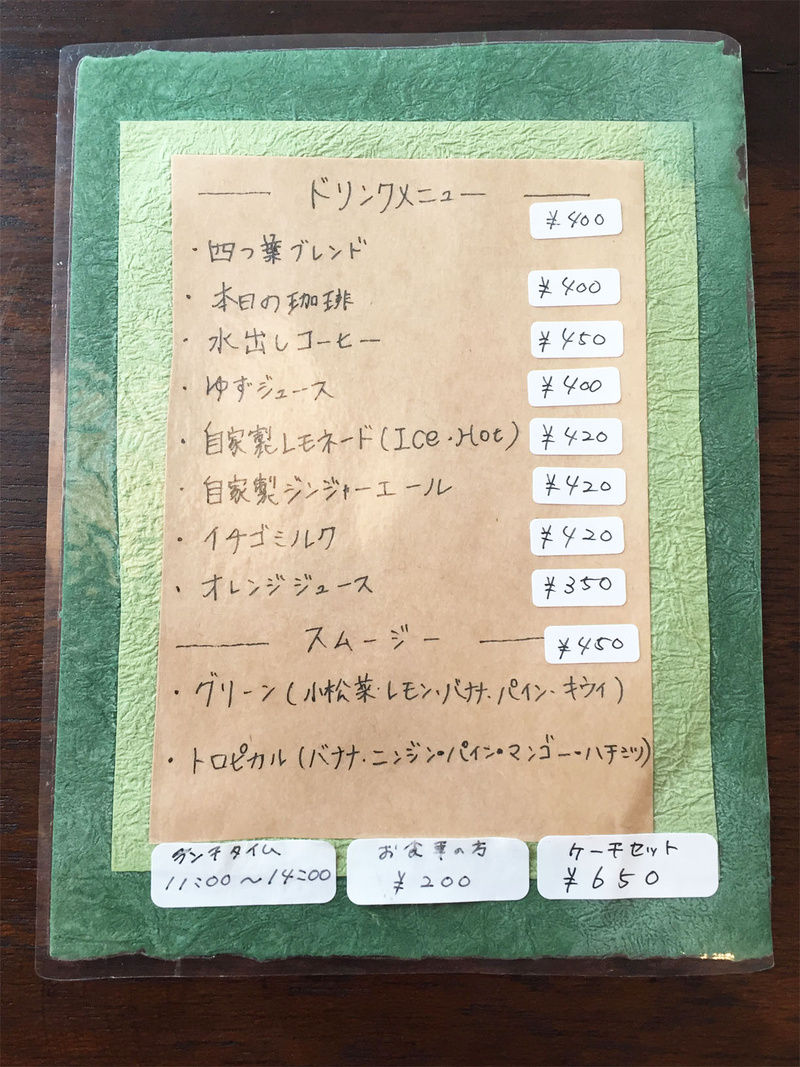 ドリンクメニュー
・四つ葉ブレンド ¥400
・本日の珈琲 ¥400
・水出しコーヒー ¥450
・ゆずジュース ¥400
・自家製レモネード(Ice・Hot) ¥420
・自家製ジンジャーエール ¥420
・イチゴミルク ¥420
・オレンジジュース ¥350
スムージー ¥450
・グリーン(小松菜・レモン・バナナ・パイン・キウイ)
・トロピカル(バナナ・ニンジン・パイン・マンゴー・ハチミツ)
ランチタイム
11:00～14:00
お食事の方
¥200
ケーキセット
¥650